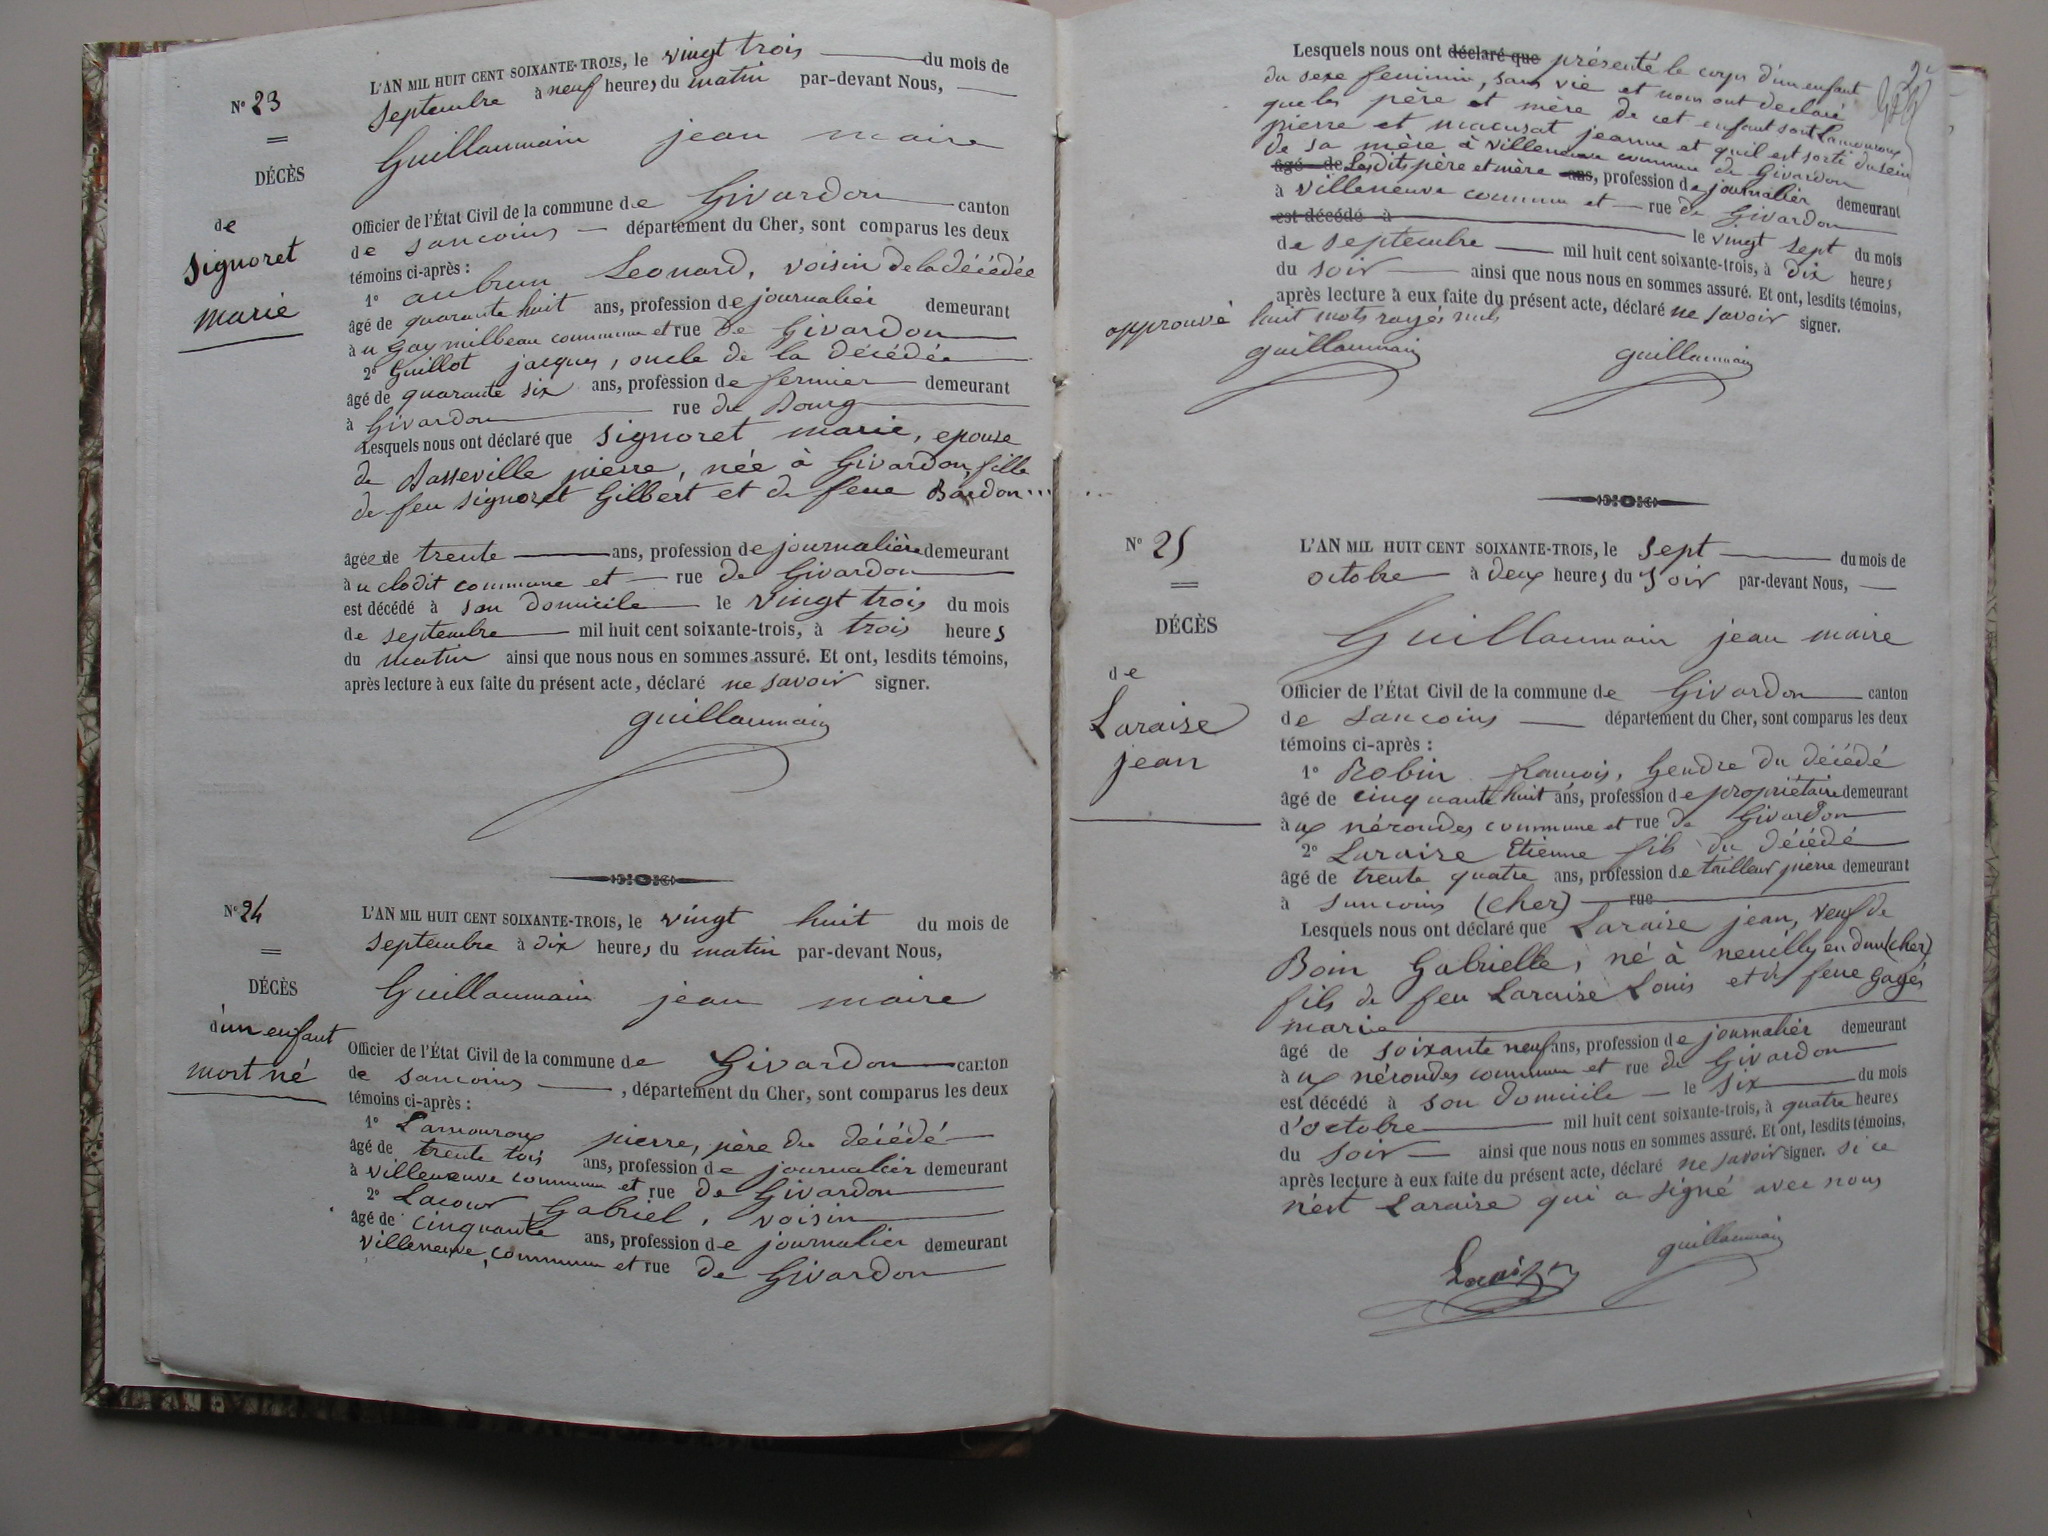 N° 23
DÉCÈS
de
Signoret
marie
L'AN MIL HUIT CENT SOIXANTE-TROIS, le vingt trois du mois de
Septembre à neuf heures du matin par-devant Nous,
Guillaumain jean maire
Officier de l'État Civil de la commune de Givardon canton
de Sancoins département du Cher, sont comparus les deux
témoins ci-après :
1° aubrun Leonard, voisin de la décédée
âgé de quarante huit ans, profession de journalier demeurant
à u Gay milbeau commune et rue de Givardon
2° Guillot jacques, oncle de la décédée
âgé de quarante six ans, profession de fermier demeurant
à Givardon rue du Bourg
Lesquels nous ont déclaré que Signoret marie, epouse
de Basseville pierre, née à Givardon, fille
de feu Signoret Gilbert et de feue Bardon...
âgée de trente ans, profession de journalière demeurant
à u clodit commune et rue de Givardon
est décédé à son domicile le vingt trois du mois
de septembre mil huit cent soixante-trois, à trois heures
du matin ainsi que nous nous en sommes assuré. Et ont, lesdits témoins,
après lecture à eux faite du présent acte, déclaré ne savoir signer.
guillaumain
N° 24
DÉCÈS
d'un enfant
mort né
L'AN MIL HUIT CENT SOIXANTE-TROIS, le vingt huit du mois de
Septembre à dix heures du matin par-devant Nous,
Guillaumain jean maire
Officier de l'État Civil de la commune de Givardon canton
de Sancoins , département du Cher, sont comparus les deux
témoins ci-après :
1° Lamouroux pierre, père du décédé
âgé de trente tois ans, profession de journalier demeurant
à villeneuve commune et rue de Givardon
2° Lacour Gabriel, voisin
âgé de cinquante ans, profession de journalier demeurant
villeneuve, commune et rue de Givardon
Lesquels nous ont déclaré que présenté le corps d'un enfant
du sexe feminin, sans vie et nous ont declaré
que les père et mère de cet enfant sont Lamouroux
pierre et macusat jeanne et qu'il est sorti du sein
de sa mère à villeneuve commune de Givardon
âgé de Lesdits père et mère ans, profession de journalier demeurant
à villeneuve commune et rue de Givardon
est décédé à le vingt sept du mois
de septembre mil huit cent soixante-trois, à dix heures
du soir ainsi que nous nous en sommes assuré. Et ont, lesdits témoins,
après lecture à eux faite du présent acte, déclaré ne savoir signer.
approuvé huit mots rayés nuls
guillaumain guillaumain
N° 25
DÉCÈS
de
Laraise
jean
L'AN MIL HUIT CENT SOIXANTE-TROIS, le sept du mois de
octobre à deux heures du soir par-devant Nous,
Guillaumain jean maire
Officier de l'État Civil de la commune de Givardon canton
de Sancoins département du Cher, sont comparus les deux
témoins ci-après :
1° Robin francois, Gendre du décédé
âgé de cinquante huit ans, profession de propriétaire demeurant
à ux nérondes commune et rue de Givardon
2° Laraise Etienne fils du décédé
âgé de trente quatre ans, profession de tailleur pierre demeurant
à Sancoins (cher) rue
Lesquels nous ont déclaré que Laraise jean, veuf de
Boin Gabrielle, né à neuilly en dun (cher)
fils de feu Laraise Louis et de feue Gagés
marie
âgé de soixante neuf ans, profession de journalier demeurant
à ux nérondes commune et rue de Givardon
est décédé à son domicile le six du mois
d'octobre mil huit cent soixante-trois, à quatre heures
du soir ainsi que nous nous en sommes assuré. Et ont, lesdits témoins,
après lecture à eux faite du présent acte, déclaré ne savoir signer. si ce
n'est Laraise qui a signé avec nous
guillaumain